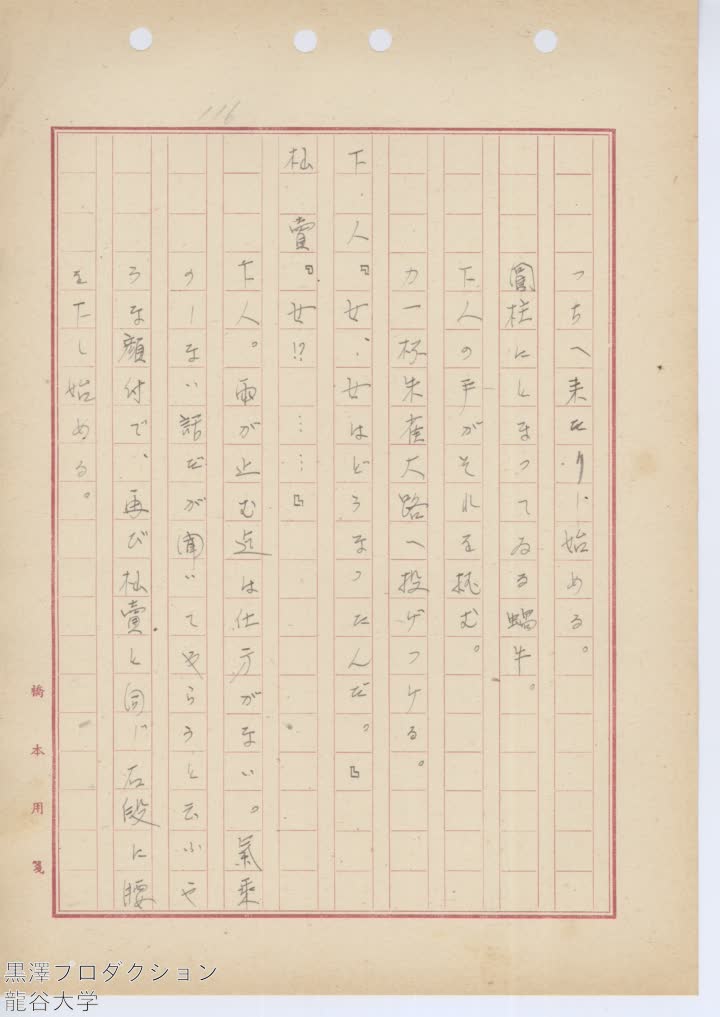 116
つちへ来たりし始める。
圓柱にとまつてゐる蝸牛。
下人の手がそれを挘む。
力一杯朱雀大路へ投げつける。
下人『女、女はどうなつたんだ。』
杣賣『女!?……』
下人。雨が止む迄は仕方がない。氣乗
のしない話だが聞いてやらうと云ふや
うな顔付で、再び杣賣と同じ石段に腰
を下し始める。
橋本用箋
黒澤プロダクション
龍谷大学